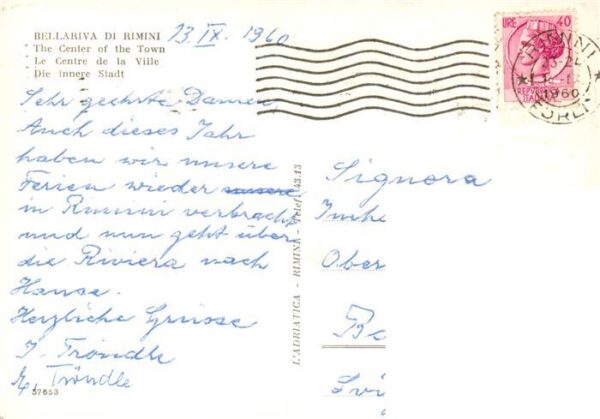 BELLARIVA DI RIMINI
The Center of the Town
Le Centre de la Ville
Die innere Stadt
13. IX. 1960
LIRE 40
1960
Sehr geehrte Damen,
Auch dieses Jahr
haben wir unsere
Ferien wieder unsere
in Rimini verbracht
und nun geht über
die Riviera nach
Hause.
Herzliche Grüsse
J. Tröndle
E. Tröndle
32653
L'ADRIATICA - RIMINI - Telef. 43.13
Signora
Imke
Ober
Be
Svi